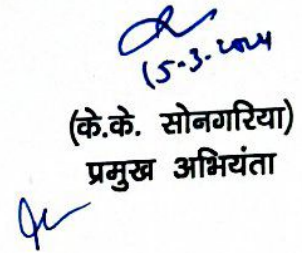 15-3-2024
(के.के. सोनगरिया)
प्रमुख अभियंता